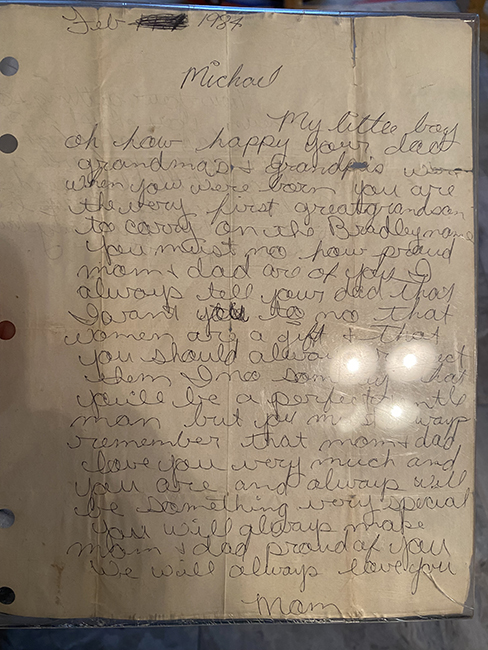 Feb 1984
Michael
My little boy
oh how happy your dad
grandma's + Grandpa's were
when you were born you are
the very first great grandson
to carry on the Bradley name
you must no how proud
mom + dad are of you I
always tell your dad that
I want you to no that
women are a gift & that
you should always
them I no that
you'll be a perfect
man but you always
remember that mom + dad
love you very much and
you are and always will
be something very special
You will always make
mom + dad proud of you
We will always love you
Mom